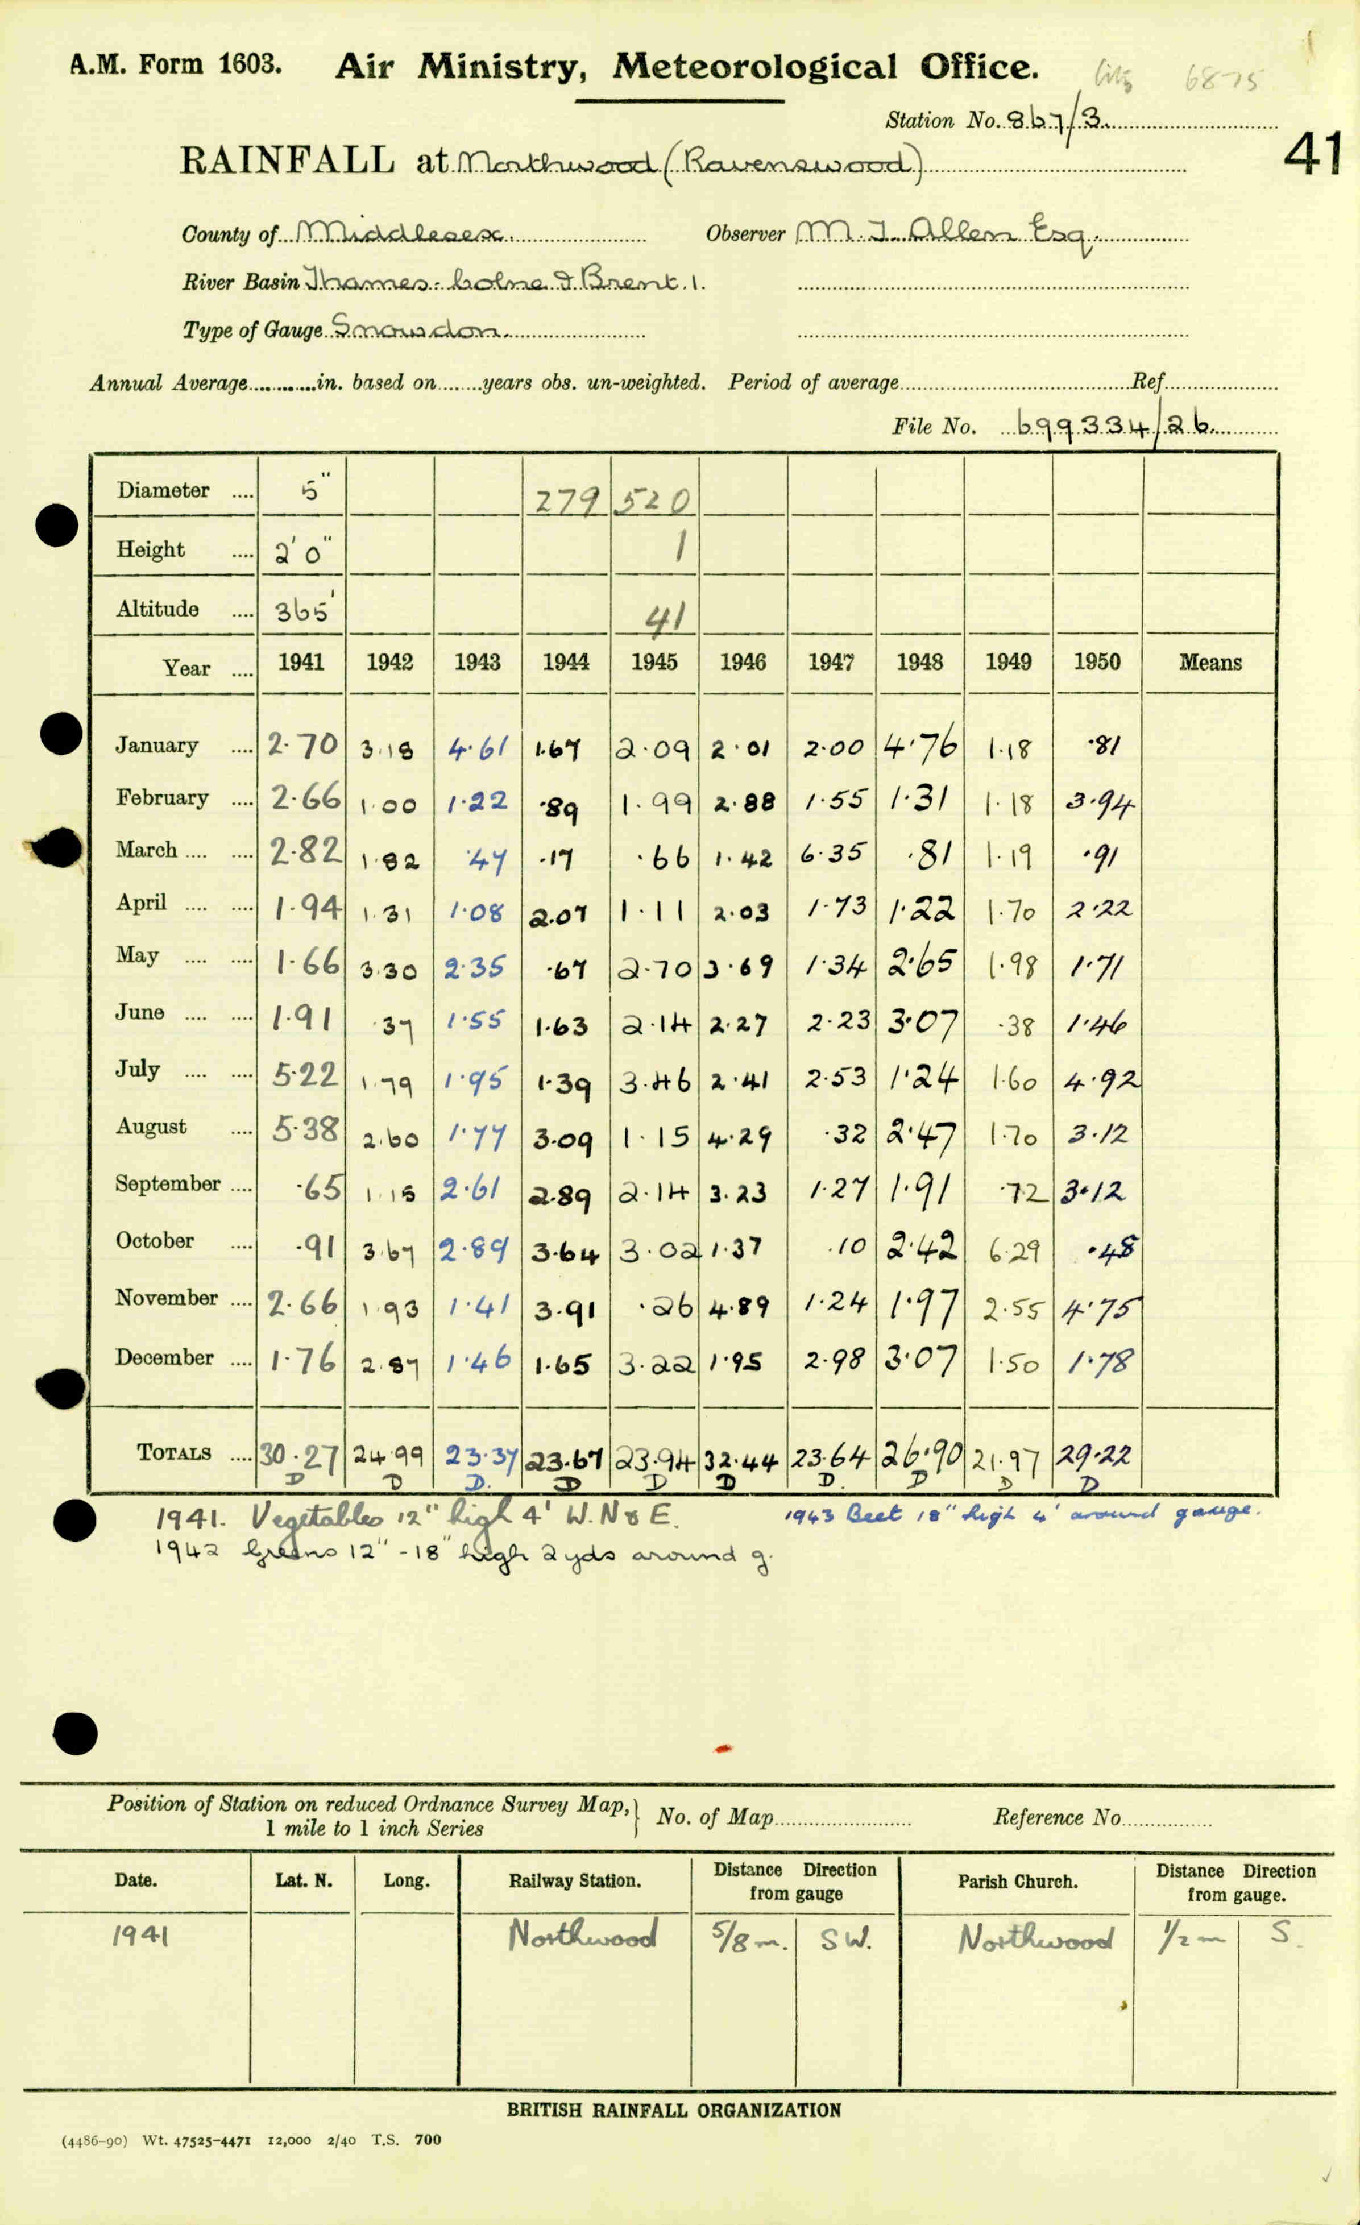 A.M. Form 1603. Air Ministry, Meteorological Office. 6875
Station No. 867/3.
41
RAINFALL at Northwood (Ravenswood)
County of Middlesex. Observer M. J. Allen Esq.
River Basin Thames: Colne & Brent. 1.
Type of Gauge Snowdon.
Annual Average............in. based on........years obs. un-weighted. Period of average.................... Ref....................
File No. 699334/26
Diameter .... 5" 279 520
Height .... 2'0" 1
Altitude .... 365' 41
Year .... 1941 1942 1943 1944 1945 1946 1947 1948 1949 1950 Means
January .... 2.70 3.18 4.61 1.67 2.09 2.01 2.00 4.76 1.18 .81
February .... 2.66 1.00 1.22 .89 1.99 2.88 1.55 1.31 1.18 3.94
March .... .... 2.82 1.82 .47 .17 .66 1.42 6.35 .81 1.19 .91
April .... .... 1.94 1.31 1.08 2.07 1.11 2.03 1.73 1.22 1.70 2.22
May .... .... 1.66 3.30 2.35 .67 2.70 3.69 1.34 2.65 1.98 1.71
June .... .... 1.91 .37 1.55 1.63 2.14 2.27 2.23 3.07 .38 1.46
July .... .... 5.22 1.79 1.95 1.39 3.46 2.41 2.53 1.24 1.60 4.92
August .... 5.38 2.60 1.77 3.09 1.15 4.29 .32 2.47 1.70 3.12
September .... .65 1.15 2.61 2.89 2.14 3.23 1.27 1.91 .72 3.12
October .... .91 3.67 2.89 3.64 3.02 1.37 .10 2.42 6.29 .48
November .... 2.66 1.93 1.41 3.91 .26 4.89 1.24 1.97 2.55 4.75
December .... 1.76 2.87 1.46 1.65 3.22 1.95 2.98 3.07 1.50 1.78
TOTALS .... 30.27 24.99 23.37 23.67 23.94 32.44 23.64 26.90 21.97 29.22
D D D. D D D D. D D D
1941. Vegetables 12" high 4' W. N & E. 1943 Beet 18" high 4' around gauge.
1942 Greens 12"-18" high 2 yds around g.
Position of Station on reduced Ordnance Survey Map, } No. of Map.................... Reference No....................
1 mile to 1 inch Series
Date. Lat. N. Long. Railway Station. Distance Direction from gauge Parish Church. Distance Direction from gauge.
1941 Northwood 5/8 m. SW. Northwood 1/2 m S.
BRITISH RAINFALL ORGANIZATION
(4486-90) Wt. 47525-4471 12,000 2/40 T.S. 700